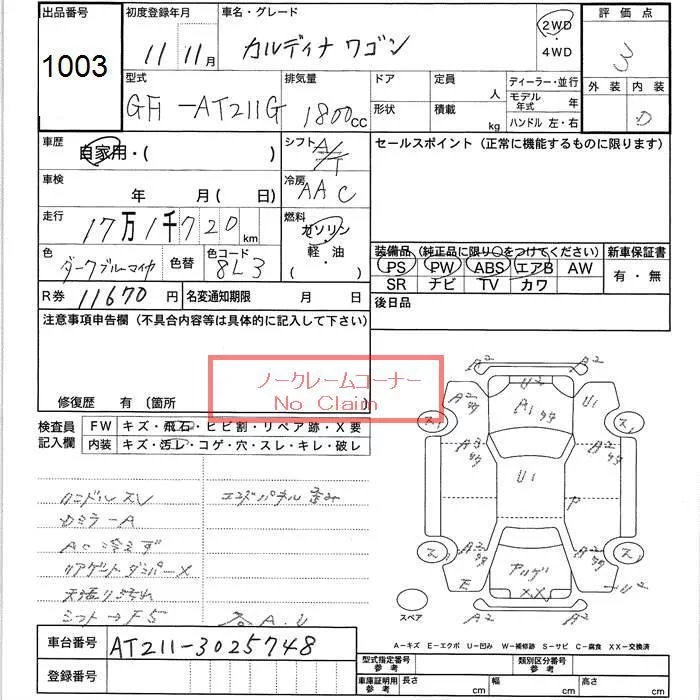 出品番号 初度登録年月 車名・グレード 評価点
1003 11 11月 カルディナ ワゴン 2WD・4WD 3
型式 排気量 ドア 定員 人 ディーラー・並行 外装 内装
GH-AT211G 1800cc 形状 積載 kg モデル年式 年 D
ハンドル 左・右
車歴 自家用・( ) シフト A/T セールスポイント(正常に機能するものに限ります)
車検 年 月(日) 冷房 AAC
走行 17万1千720km 燃料 ガソリン・軽油・( )
装備品(純正品に限り○をつけてください) 新車保証書
色 ダークブルーマイカ 色替 色コード 8L3
PS PW ABS エアB AW 有・無
SR ナビ TV カワ
R券 11670円 名変通知期限 月 日 後日品
注意事項申告欄(不具合内容等は具体的に記入して下さい)
ノークレームコーナー
No Claim
修復歴 有〔箇所
検査員記入欄 FW キズ・飛石・ヒビ割・リペア跡・X要
内装 キズ・汚レ・コゲ・穴・スレ・キレ・破レ
ハンドルスレ エンドパネル歪み
DミラーA
AC冷えず
リアゲートダンパーX
天張り汚れ
シフト→F5
A2 A2
U2
A1 U1
A2
U1
P
E U2
XX
A2 A2
スペア
A-キズ E-エクボ U-凹み W-補修跡 S-サビ C-腐食 XX-交換済
車台番号 AT211-3025748
登録番号
型式指定番号 参考 類別区分番号 参考
車庫証明用 参考 長さ cm 幅 cm 高さ cm